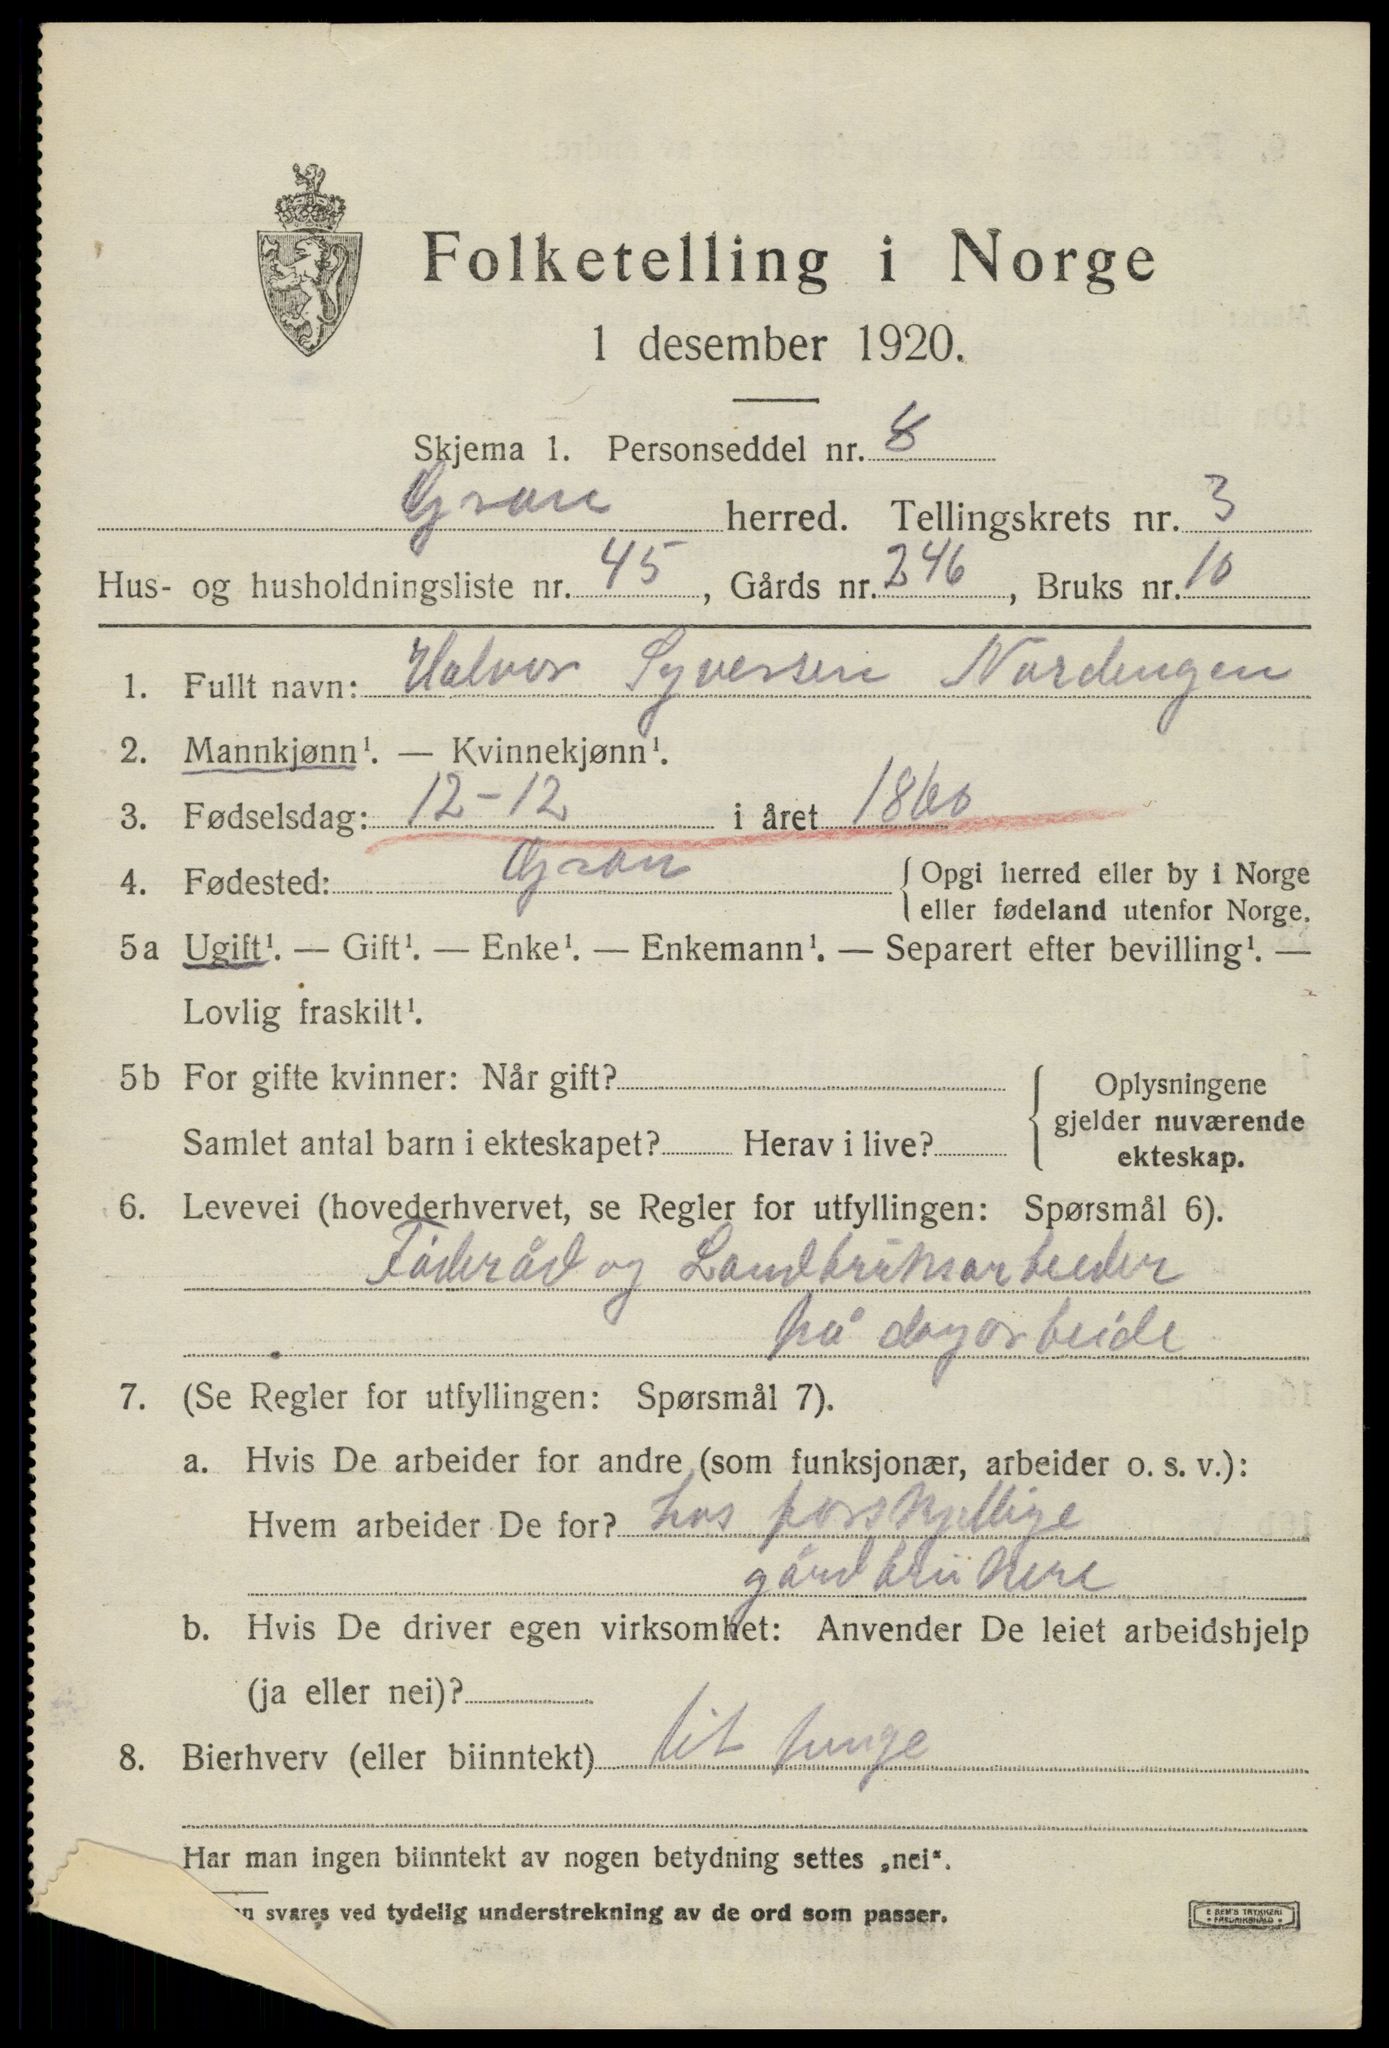 Folketelling i Norge
1 desember 1920.
Skjema 1. Personseddel nr. 8
Gran herred. Tellingskrets nr. 3
Hus- og husholdningsliste nr. 45, Gårds nr. 246, Bruks nr. 10
1. Fullt navn: Halvor Syversen Nordengen
2. Mannkjønn¹. — Kvinnekjønn¹.
3. Fødselsdag: 12-12 i året 1860
4. Fødested: Gran {Opgi herred eller by i Norge
eller fødeland utenfor Norge.
5a Ugift¹. — Gift¹. — Enke¹. — Enkemann¹. — Separert efter bevilling¹. —
Lovlig fraskilt¹.
5b For gifte kvinner: Når gift? {Oplysningene
gjelder nuværende
Samlet antal barn i ekteskapet? Herav i live?
ekteskap.
6. Levevei (hovederhvervet, se Regler for utfyllingen: Spørsmål 6).
Föderåd og Landbruksarbeider
på dagarbeide
7. (Se Regler for utfyllingen: Spørsmål 7).
a. Hvis De arbeider for andre (som funksjonær, arbeider o. s. v.):
Hvem arbeider De for? hos forskjellige
gårdbrukere
b. Hvis De driver egen virksomhet: Anvender De leiet arbeidshjelp
(ja eller nei)?
8. Bierhverv (eller biinntekt)
Har man ingen biinntekt av nogen betydning settes „nei“.
svares ved tydelig understrekning av de ord som passer.
E SEM'S TRYKKERI
FREDRIKSHALD